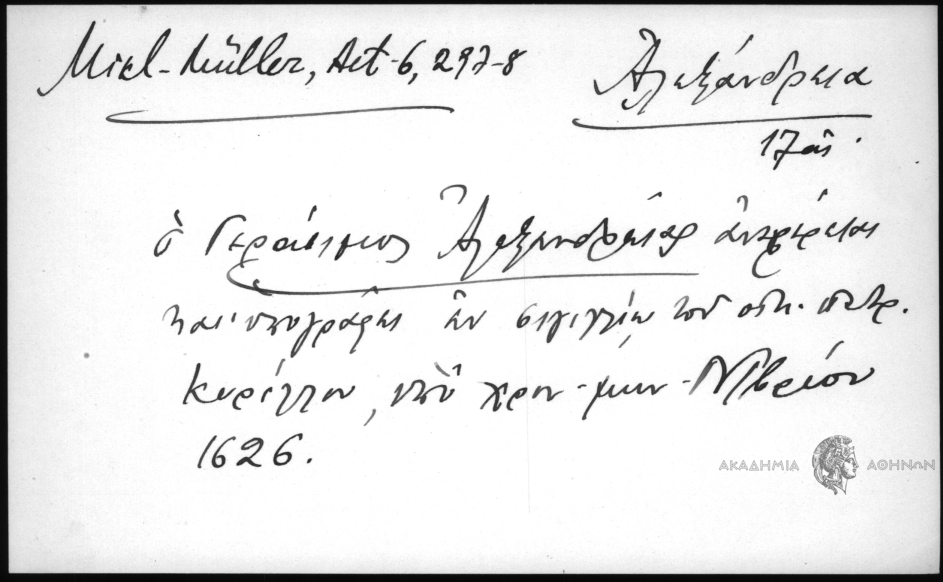 Mikl-Müller, Act-6, 297-8
Ἀλεξάνδρεια
17ος
ὁ Γεράσιμος Ἀλεξανδρείας ἀναφέρεται
και ὑπογράφει ἐν σιγιλλίῳ τοῦ οἰκ. πατρ.
Κυρίλλου, ὑπὸ χρον-μην-Νοεμβρίου
1626.
ΑΚΑΔΗΜΙΑ ΑΘΗΝΩΝ